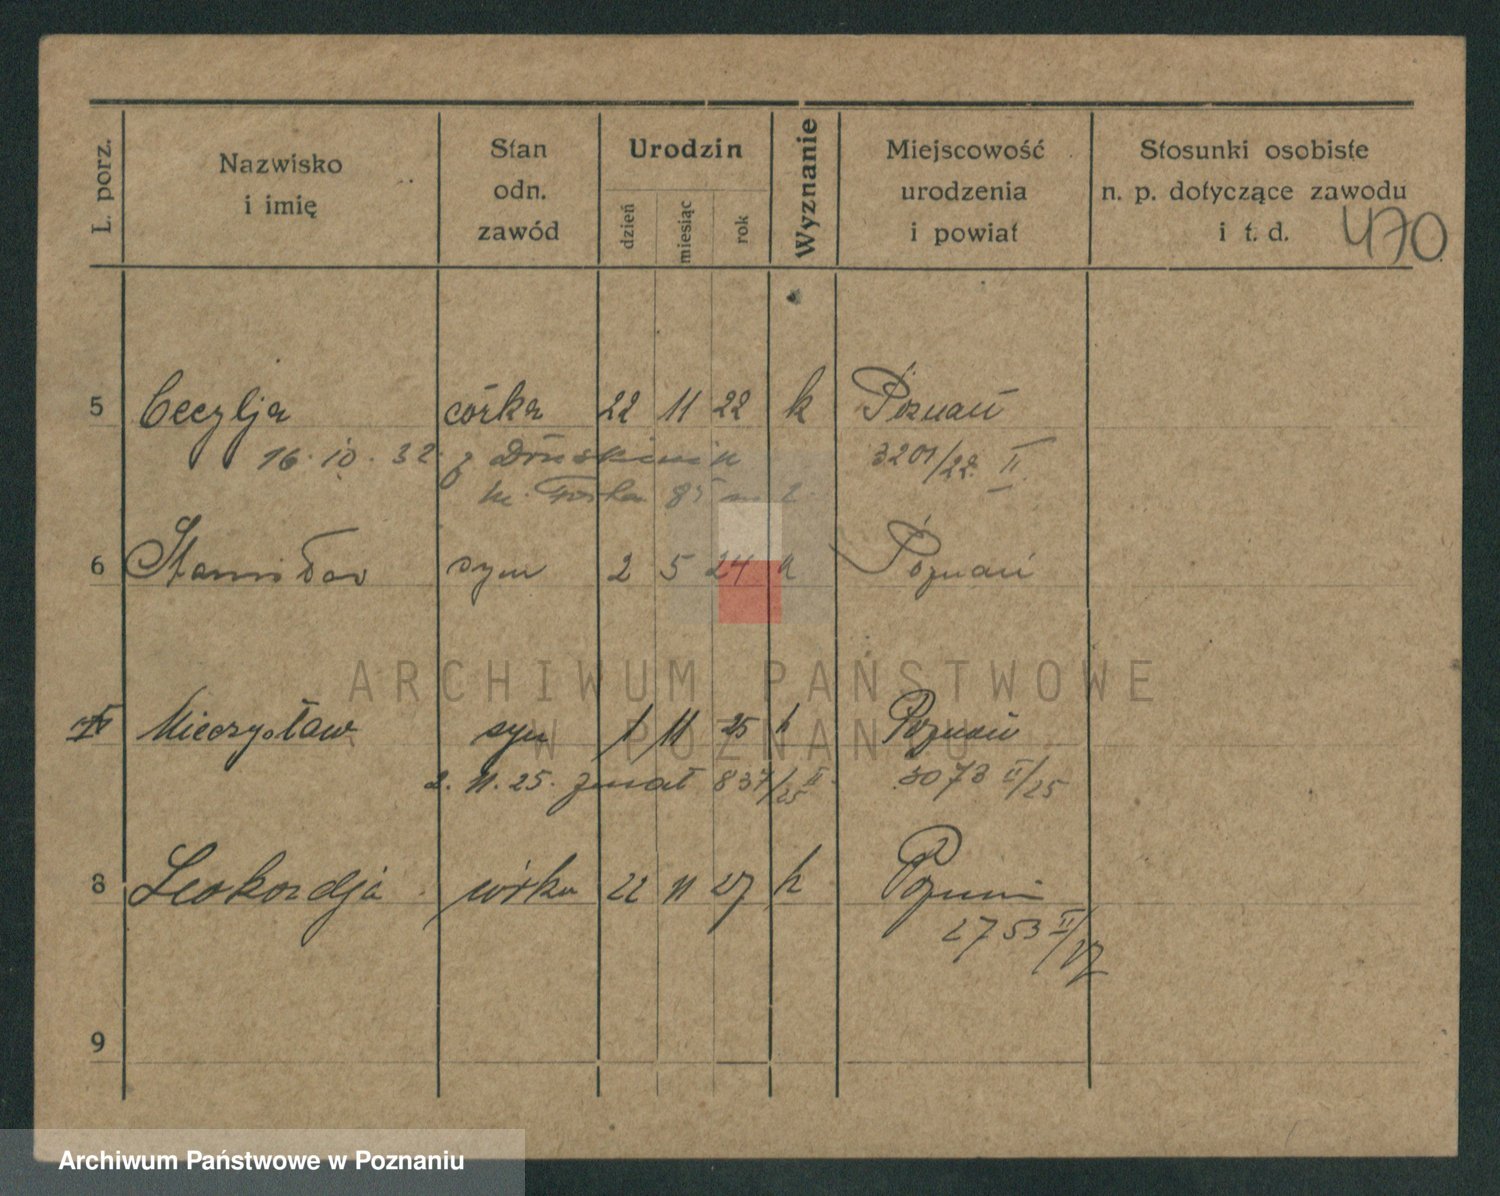 L. porz.
Nazwisko
i imię
Stan
odn.
zawód
Urodzin
dzień
miesiąc
rok
Wyznanie
Miejscowość
urodzenia
i powiat
Stosunki osobiste
n. p. dotyczące zawodu
i t. d.
470
5 Cecylja córka 22 11 22 k Poznań
16. 10. 32. z Druskienik 3201/22. II
85 m 2.
6 Stanisław syn 2 5 24 k Poznań
ARCHIWUM PAŃSTWOWE
W POZNANIU
Mieczysław syn 1 11 25 k Poznań
2. 11. 25. zmarł 837/25 II 3073 II/25
8 Leokordja córka 22 11 27 k Poznań
2753 II/27
9
Archiwum Państwowe w Poznaniu